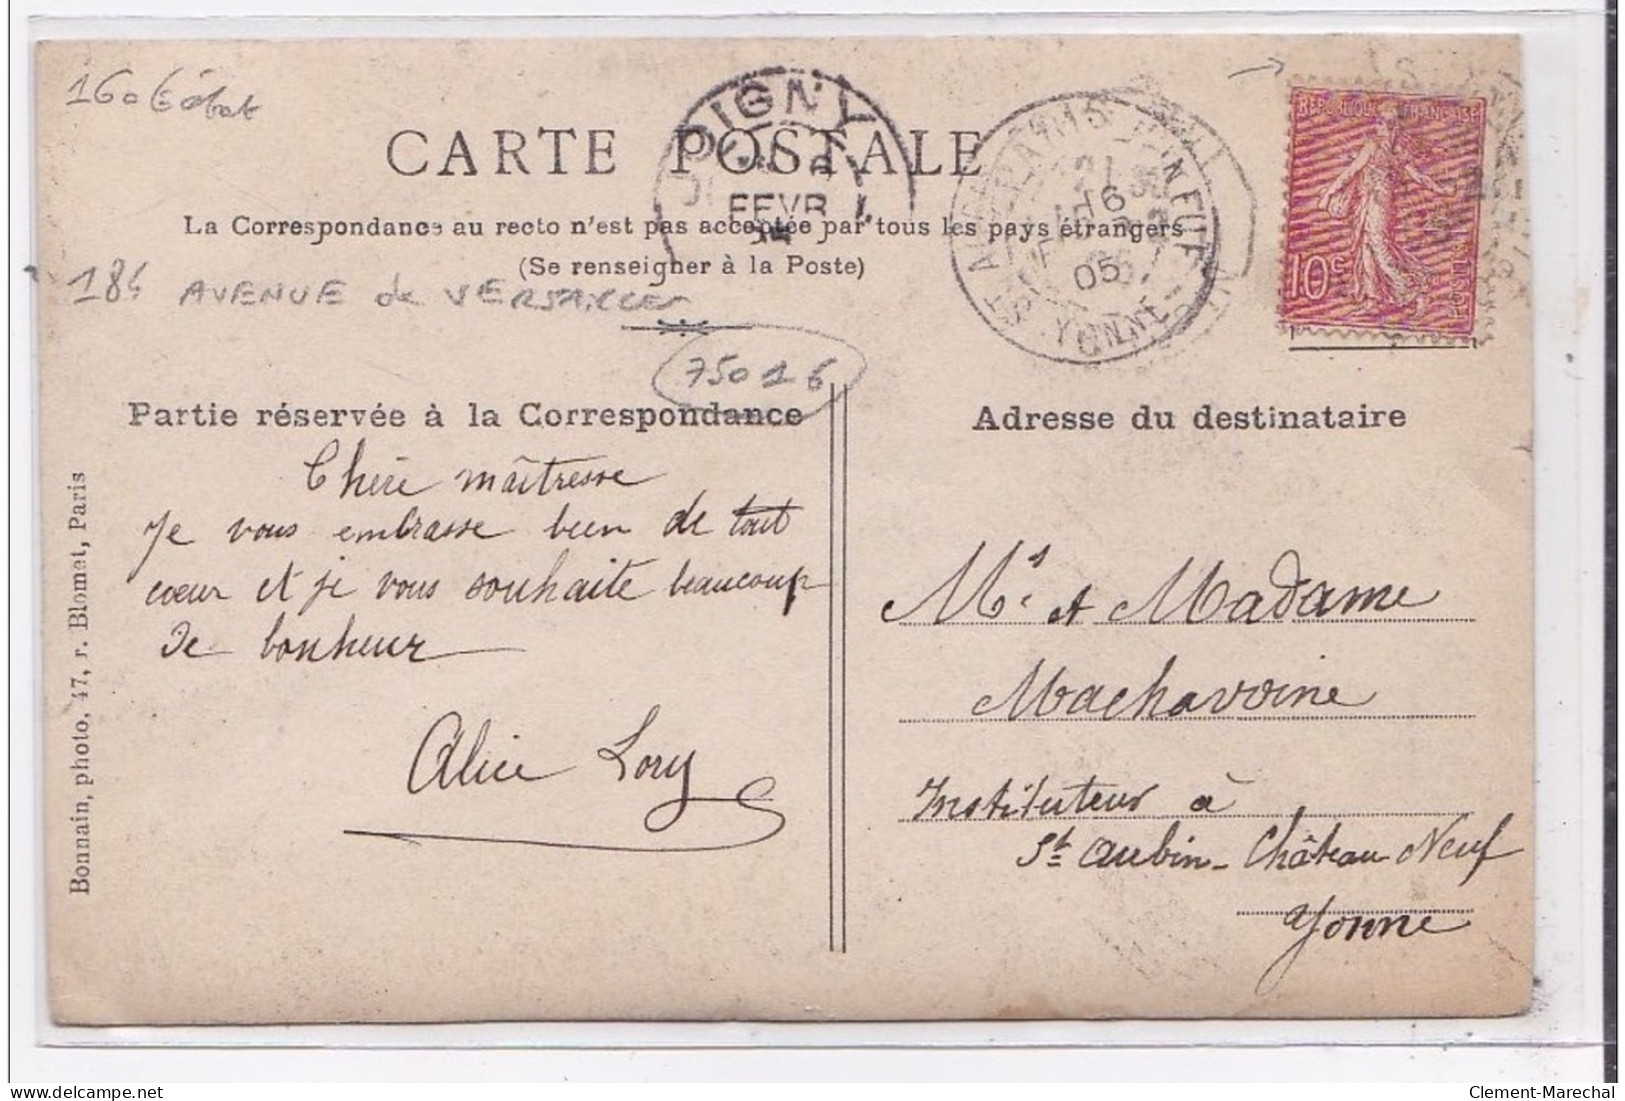 160€
CARTE POSTALE
La Correspondance au recto n'est pas acceptée par tous les pays étrangers
(Se renseigner à la Poste)
AVENUE de VERSAILLES
75016
Partie réservée à la Correspondance
Chère maîtresse
Je vous embrasse bien de tout
cœur et je vous souhaite beaucoup
de bonheur
Alice Lory
Bonnain, photo, 47, r. Blomet, Paris
DIGNY
FEVR
16
05
YONNE
REPUBLIQUE FRANÇAISE
10c
Adresse du destinataire
Mr et Madame
Machavoine
Instituteur à
St Aubin-Château Neuf
Yonne
Clement-Marechal